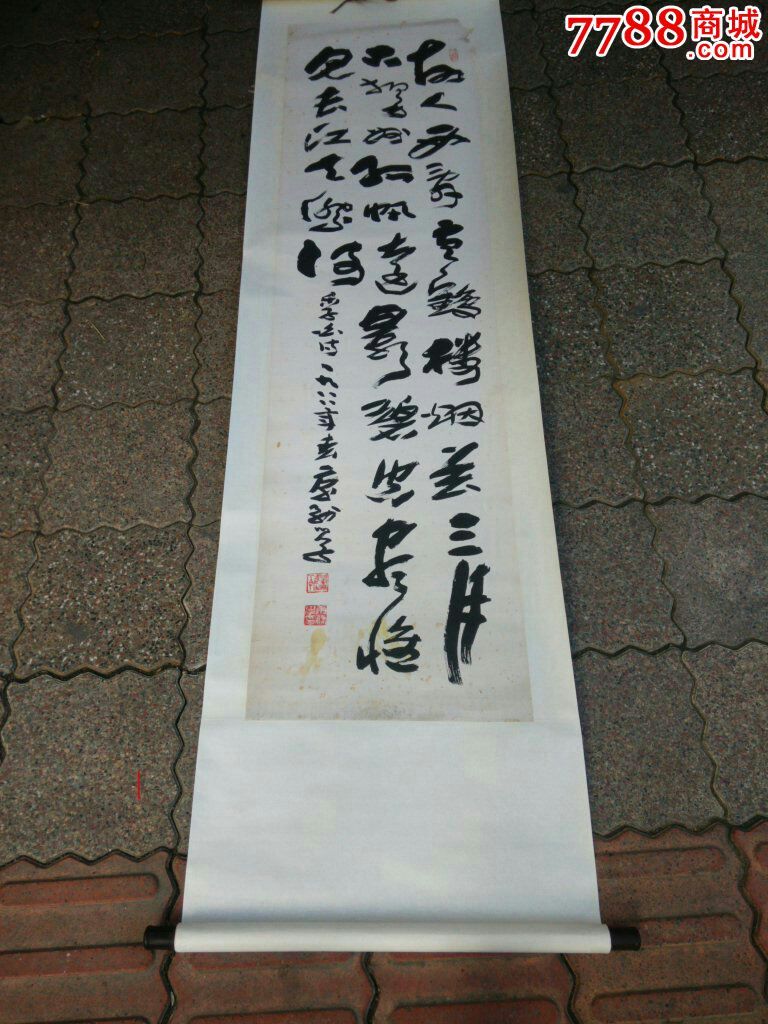 7788商城
.com
故人西辞黄鹤楼烟花三月
下扬州孤帆远影碧空尽惟
见长江天际流
李白诗一九八八年春